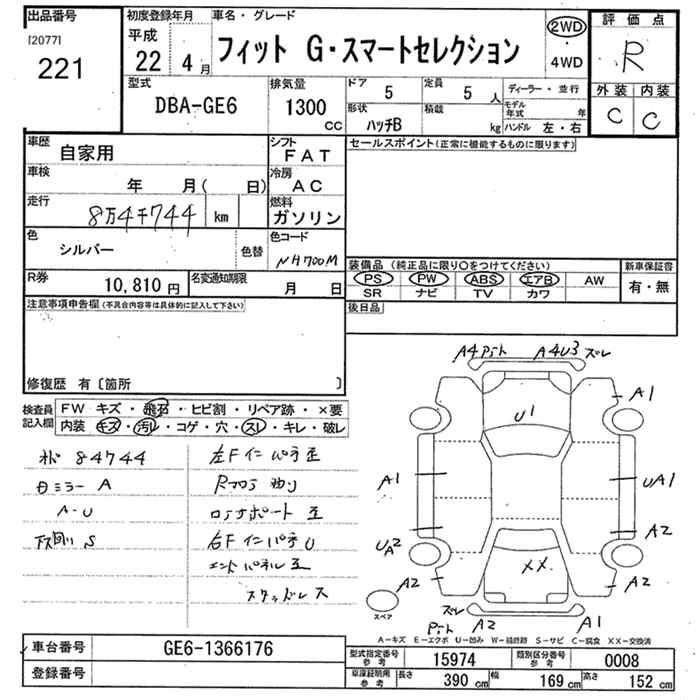 出品番号
[2077]
221
初度登録年月
平成
22 4月
車名・グレード
フィット G・スマートセレクション
2WD
・
4WD
評価点
R
外装 内装
C C
型式
DBA-GE6
排気量
1300
CC
ドア
5
定員
5 人
形状
ハッチB
積載
kg
ディーラー・並行
モデル年式 年
ハンドル 左・右
車歴
自家用
シフト
FAT
車検
年 月( 日)
冷房
AC
走行
8万4千744 km
燃料
ガソリン
色
シルバー
色替
色コード
NH700M
R券
10,810 円
名変通知期限
月 日
セールスポイント(正常に機能するものに限ります)
装備品 (純正品に限り○をつけてください)
PS PW ABS エアB AW
SR ナビ TV カワ
新車保証書
有・無
後日品
注意事項申告欄(不具合内容等は具体的に記入して下さい)
修復歴 有〔箇所 〕
検査員記入欄
FW キズ・飛石・ヒビ割・リペア跡・×要
内装 キズ・汚レ・コゲ・穴・スレ・キレ・破レ
84744
ミラー A
A-U
下回り S
左Fインパネ歪
ロアサポート歪
右FインパネU
エンドパネル歪
スタッドレス
A4 A4U3 ズレ
A1
U1
A1
UA1
A2
UA2
A2
XX
A2
スペア
ズレ
A2
A1
A-キズ E-エクボ U-凹み W-補修跡 S-サビ C-腐食 XX-交換済
車台番号
GE6-1366176
登録番号
型式指定番号
参考
15974
類別区分番号
参考
0008
車庫証明用
参考
長さ
390 cm
幅
169 cm
高さ
152 cm